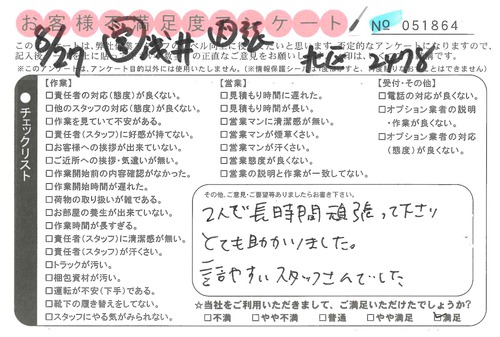 お客様不満足度アンケート! No 051864
8/27 浅井 2478
チェックリスト
【作業】
□責任者の対応(態度)が良くない。
□他のスタッフの対応(態度)が良くない。
□作業を見ていて不安がある。
□責任者(スタッフ)に好感が持てない。
□お客様への挨拶が出来ていない。
□ご近所への挨拶・気遣いが無い。
□作業開始前の内容確認がなかった。
□作業開始時間が遅れた。
□荷物の取り扱いが雑である。
□お部屋の養生が出来ていない。
□作業時間が長すぎる。
□責任者(スタッフ)に清潔感が無い。
□責任者(スタッフ)が汗くさい。
□トラックが汚い。
□梱包資材が汚い。
□運転が不安(下手)である。
□靴下の履き替えをしてない。
□スタッフにやる気がみられない。
【営業】
□見積もり時間に遅れた。
□見積もり時間が長い。
□営業マンに清潔感が無い。
□営業マンが煙草くさい。
□営業マンが汗くさい。
□営業態度が良くない。
□営業の説明と作業が一致してない。
【受付・その他】
□電話の対応が良くない。
□オプション業者の説明
・作業が良くない。
□オプション業者の対応
(態度)が良くない。
その他、ご意見・ご要望等ありましたらお書き下さい。
2人で長時間頑張って下さり
とても助かりました。
話やすいスタッフさんでした
☆当社をご利用いただきまして、ご満足いただけたでしょうか?
□不満 □やや不満 □普通 □やや満足 □満足